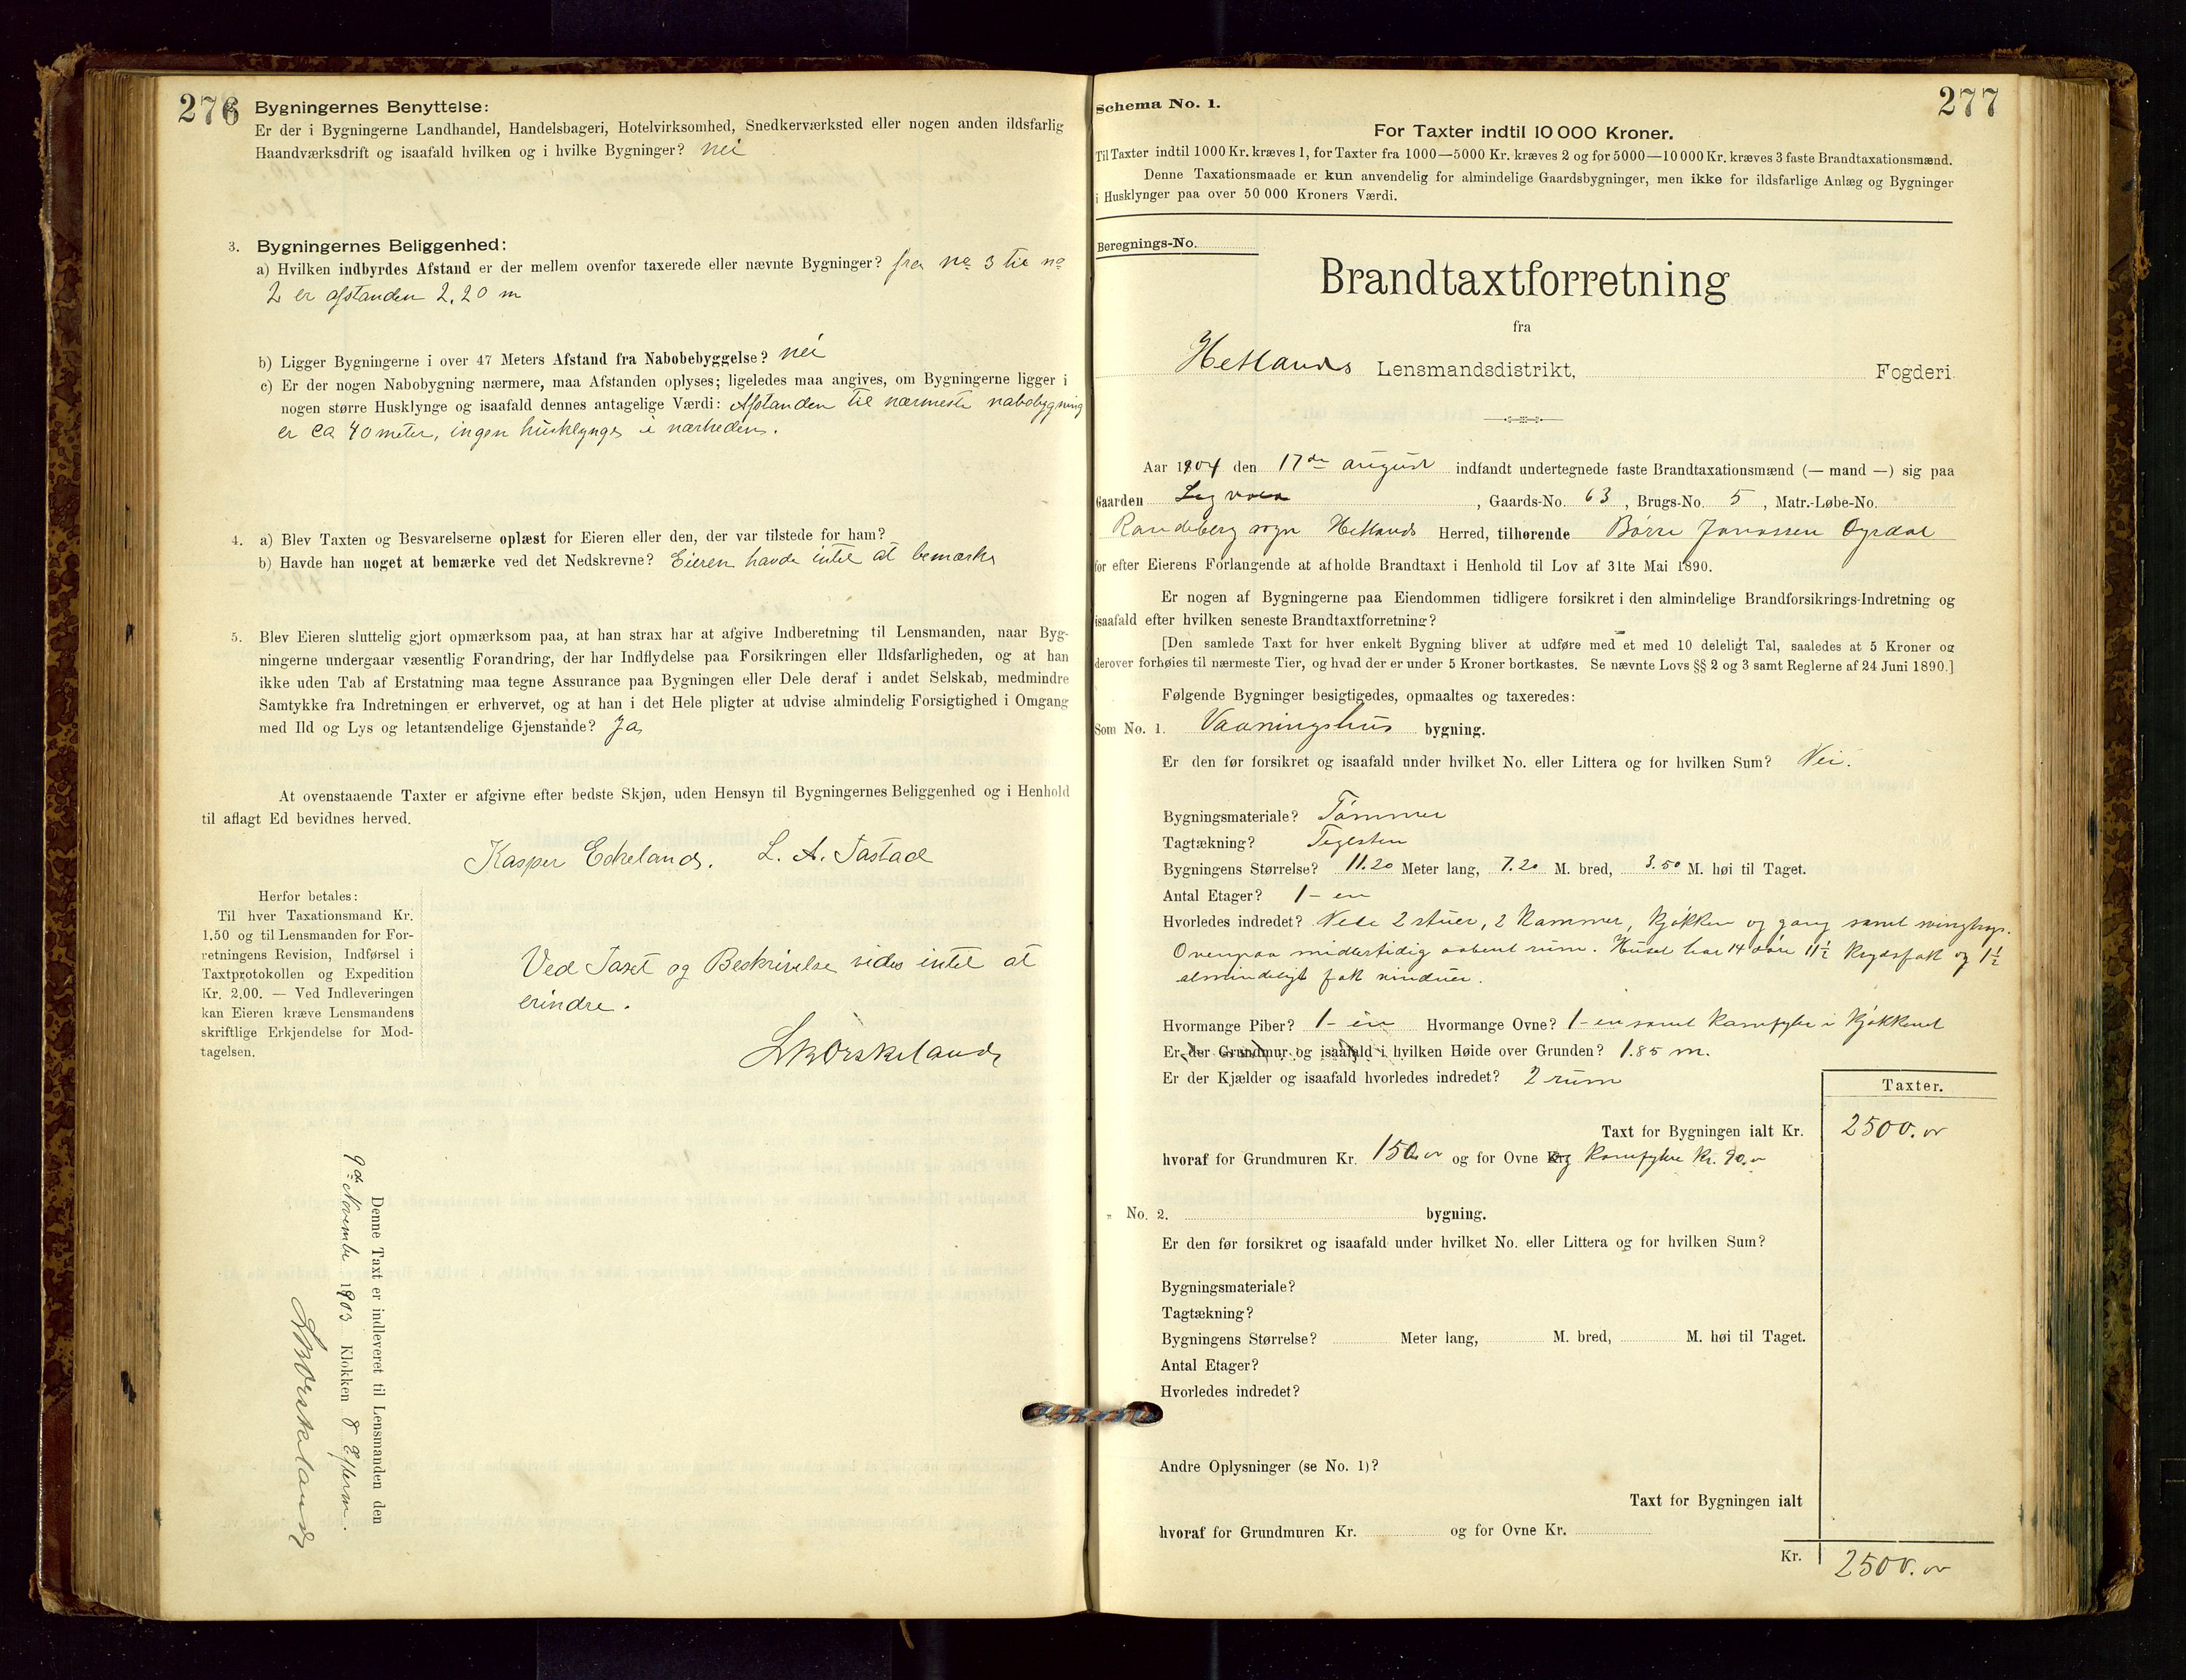 276
Bygningernes Benyttelse:
Er der i Bygningerne Landhandel, Handelsbageri, Hotelvirksomhed, Snedkerværksted eller nogen anden ildsfarlig
Haandværksdrift og isaafald hvilken og i hvilke Bygninger? nei
3. Bygningernes Beliggenhed:
a) Hvilken indbyrdes Afstand er der mellem ovenfor taxerede eller nævnte Bygninger? fra no 3 til no
2 er afstanden 2,20 m
b) Ligger Bygningerne i over 47 Meters Afstand fra Nabobebyggelse? nei
c) Er der nogen Nabobygning nærmere, maa Afstanden oplyses; ligeledes maa angives, om Bygningerne ligger i
nogen større Husklynge og isaafald dennes antagelige Værdi: Afstanden til nærmeste nabobygning
er ca 40 meter, ingen husklynge i nærheden.
4. a) Blev Taxten og Besvarelserne oplæst for Eieren eller den, der var tilstede for ham?
b) Havde han noget at bemærke ved det Nedskrevne? Eieren havde intet at bemærke
5. Blev Eieren sluttelig gjort opmærksom paa, at han strax har at afgive Indberetning til Lensmanden, naar Byg-
ningerne undergaar væsentlig Forandring, der har Indflydelse paa Forsikringen eller Ildsfarligheden, og at han
ikke uden Tab af Erstatning maa tegne Assurance paa Bygningen eller Dele deraf i andet Selskab, medmindre
Samtykke fra Indretningen er erhvervet, og at han i det Hele pligter at udvise almindelig Forsigtighed i Omgang
med Ild og Lys og letantændelige Gjenstande? Ja
At ovenstaaende Taxter er afgivne efter bedste Skjøn, uden Hensyn til Bygningernes Beliggenhed og i Henhold
til aflagt Ed bevidnes herved.
Kasper Eskeland. L. A. Tastad
Herfor betales:
Til hver Taxationsmand Kr.
1.50 og til Lensmanden for For-
retningens Revision, Indførsel i
Taxtprotokollen og Expedition
Kr. 2.00. — Ved Indleveringen
kan Eieren kræve Lensmandens
skriftlige Erkjendelse for Mod-
tagelsen.
Ved Taxt og Beskrivelse vides intet at
erindre.
Denne Taxt er indleveret til Lensmanden den
9de Novembe 1903 Klokken 8 Efterm.
277
Schema No. 1.
For Taxter indtil 10 000 Kroner.
Til Taxter indtil 1000 Kr. kræves 1, for Taxter fra 1000—5000 Kr. kræves 2 og for 5000—10 000 Kr. kræves 3 faste Brandtaxationsmænd.
Denne Taxationsmaade er kun anvendelig for almindelige Gaardsbygninger, men ikke for ildsfarlige Anlæg og Bygninger
i Husklynger paa over 50 000 Kroners Værdi.
Beregnings-No.
Brandtaxtforretning
fra
Hetlands Lensmandsdistrikt, Fogderi.
Aar 1904 den 17de august indfandt undertegnede faste Brandtaxationsmænd (— mand —) sig paa
Gaarden , Gaards-No. 63, Brugs-No. 5, Matr.-Løbe-No.
Randeberg sogn Hetlands Herred, tilhørende Børre Jonassen
for efter Eierens Forlangende at afholde Brandtaxt i Henhold til Lov af 31te Mai 1890.
Er nogen af Bygningerne paa Eiendommen tidligere forsikret i den almindelige Brandforsikrings-Indretning og
isaafald efter hvilken seneste Brandtaxtforretning?
[Den samlede Taxt for hver enkelt Bygning bliver at udføre med et med 10 deleligt Tal, saaledes at 5 Kroner og
derover forhøies til nærmeste Tier, og hvad der er under 5 Kroner bortkastes. Se nævnte Lovs §§ 2 og 3 samt Reglerne af 24 Juni 1890.]
Følgende Bygninger besigtigedes, opmaaltes og taxeredes:
Som No. 1. Vaaningshus bygning.
Er den før forsikret og isaafald under hvilket No. eller Littera og for hvilken Sum? Nei.
Bygningsmateriale? Tømmer
Tagtækning? Teglsten
Bygningens Størrelse? 11.20 Meter lang, 7.20 M. bred, 3.50 M. høi til Taget.
Antal Etager? 1 - en
Hvorledes indredet? Nede 2 stuer, 2 Kammer, Kjøkken og gang samt svingtrap.
Ovenpaa midlertidig aabent rum. Huset har 14 døre 11½ Krydsfak og 1½
almindeligt fak vinduer.
Hvormange Piber? 1 - en Hvormange Ovne? 1 - en samt Komfyhr i Kjøkkenet
Er der Grundmur og isaafald i hvilken Høide over Grunden? 1.85 m.
Er der Kjælder og isaafald hvorledes indredet? 2 rum
Taxter.
Taxt for Bygningen ialt Kr. 2500.
hvoraf for Grundmuren Kr. 150. og for Ovne og Komfyhr Kr. 90.
" No. 2. bygning.
Er den før forsikret og isaafald under hvilket No. eller Littera og for hvilken Sum?
Bygningsmateriale?
Tagtækning?
Bygningens Størrelse? Meter lang, M. bred, M. høi til Taget.
Antal Etager?
Hvorledes indredet?
Andre Oplysninger (se No. 1)?
Taxt for Bygningen ialt
hvoraf for Grundmuren Kr. og for Ovne Kr.
Kr. 2500.